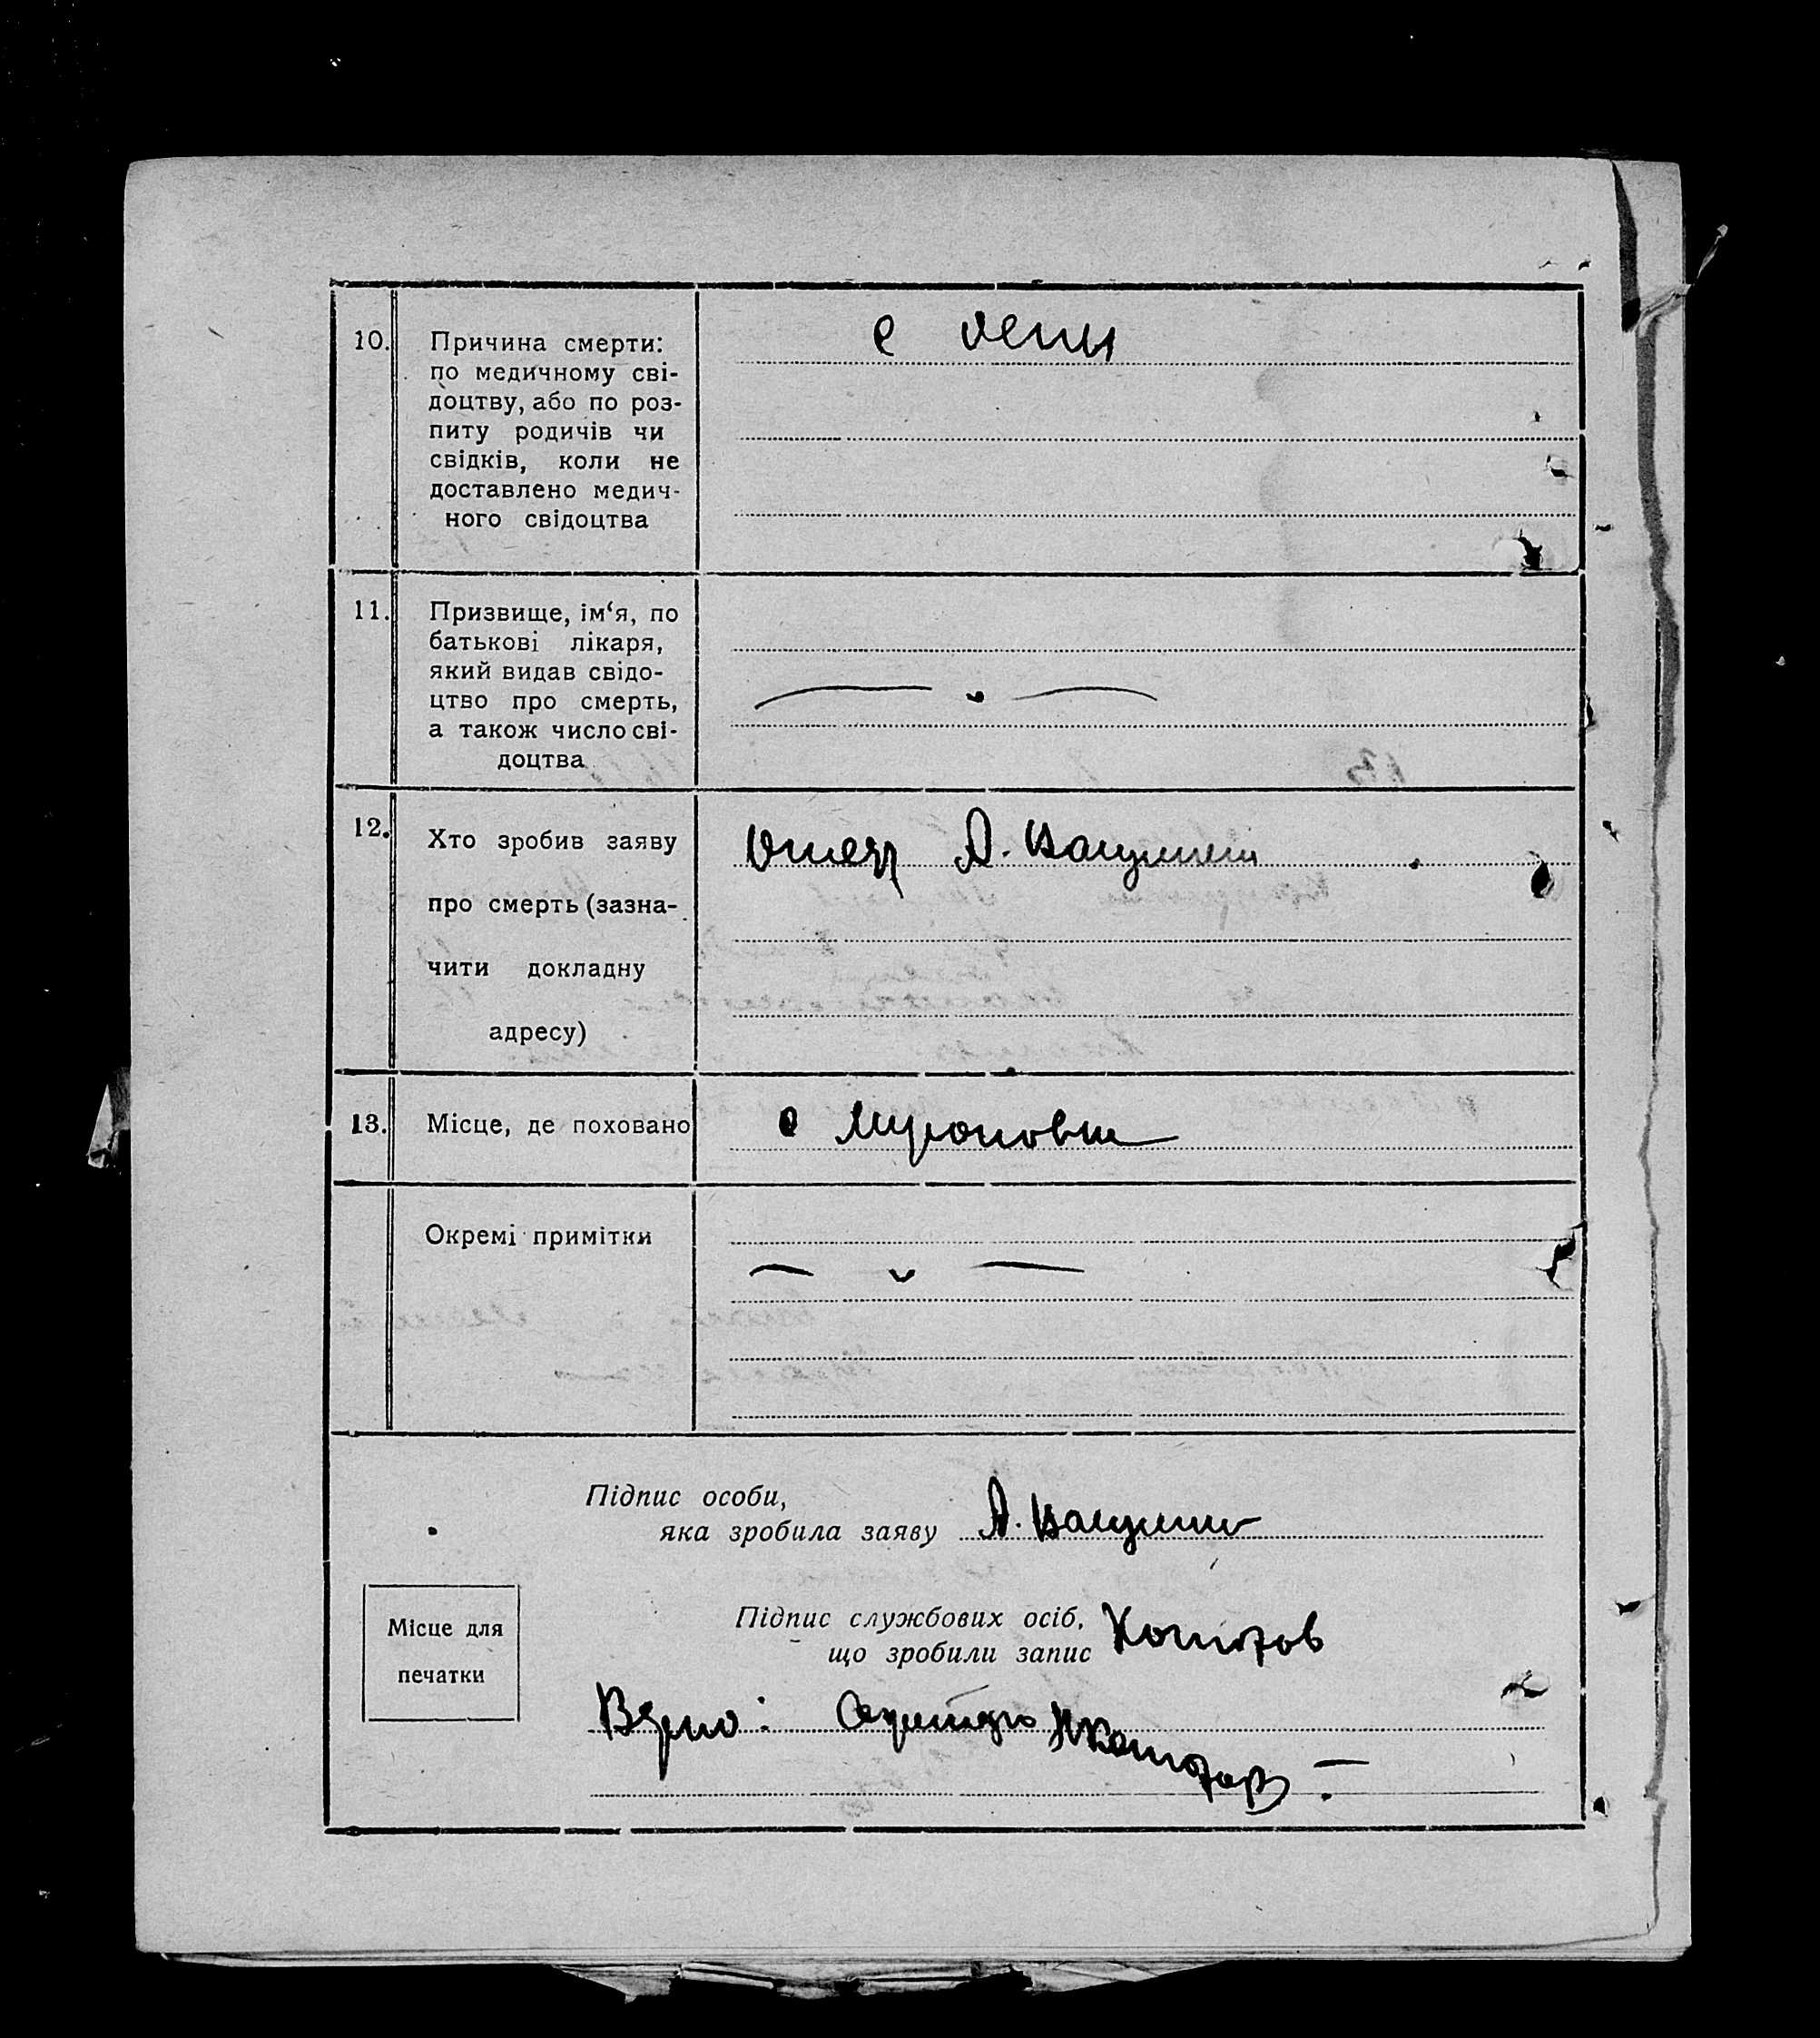 10. Причина смерти: с оспы
по медичному сві-
доцтву, або по роз-
питу родичів чи
свідків, коли не
доставлено медич-
ного свідоцтва
11. Призвище, ім‘я, по
батькові лікаря,
який видав свідо-
цтво про смерть,
а також число сві-
доцтва
12. Хто зробив заяву Отец А.
про смерть (зазна-
чити докладну
адресу)
13. Місце, де поховано с
Окремі примітки
Підпис особи,
яка зробила заяву А.
Підпис службових осіб,
що зробили запис
Місце для
печатки
Верно: